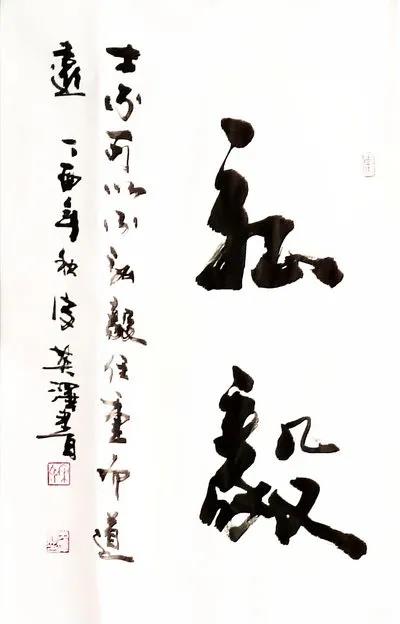 弘毅
士不可以不弘毅任重而道
遠 丁酉年秋 英澤書